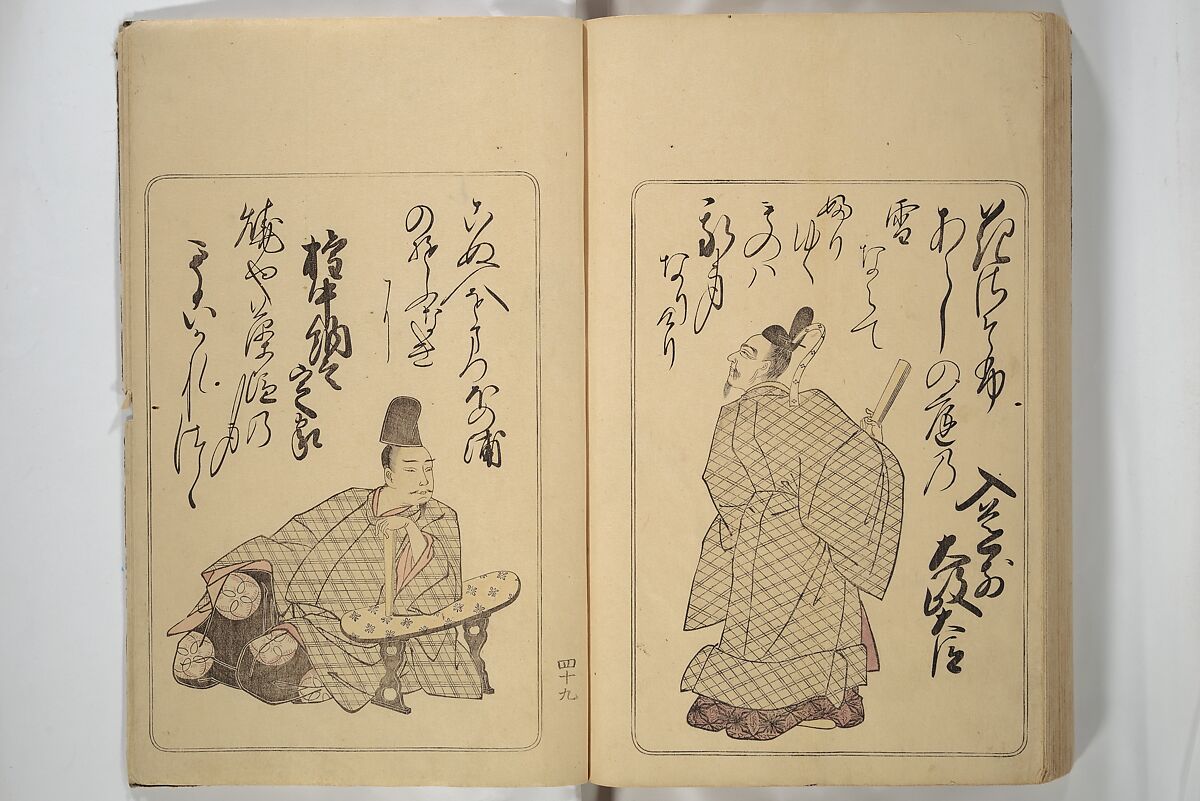 花さそふ
あらしの庭の
雪
なして
ふり
ゆく
ものハ
我身
なりけり
入道前
太政大臣
こぬ人をまつほの浦
のゆふなき
に
権中納言定家
焼や藻塩の身
もこかれつゝ
四十九